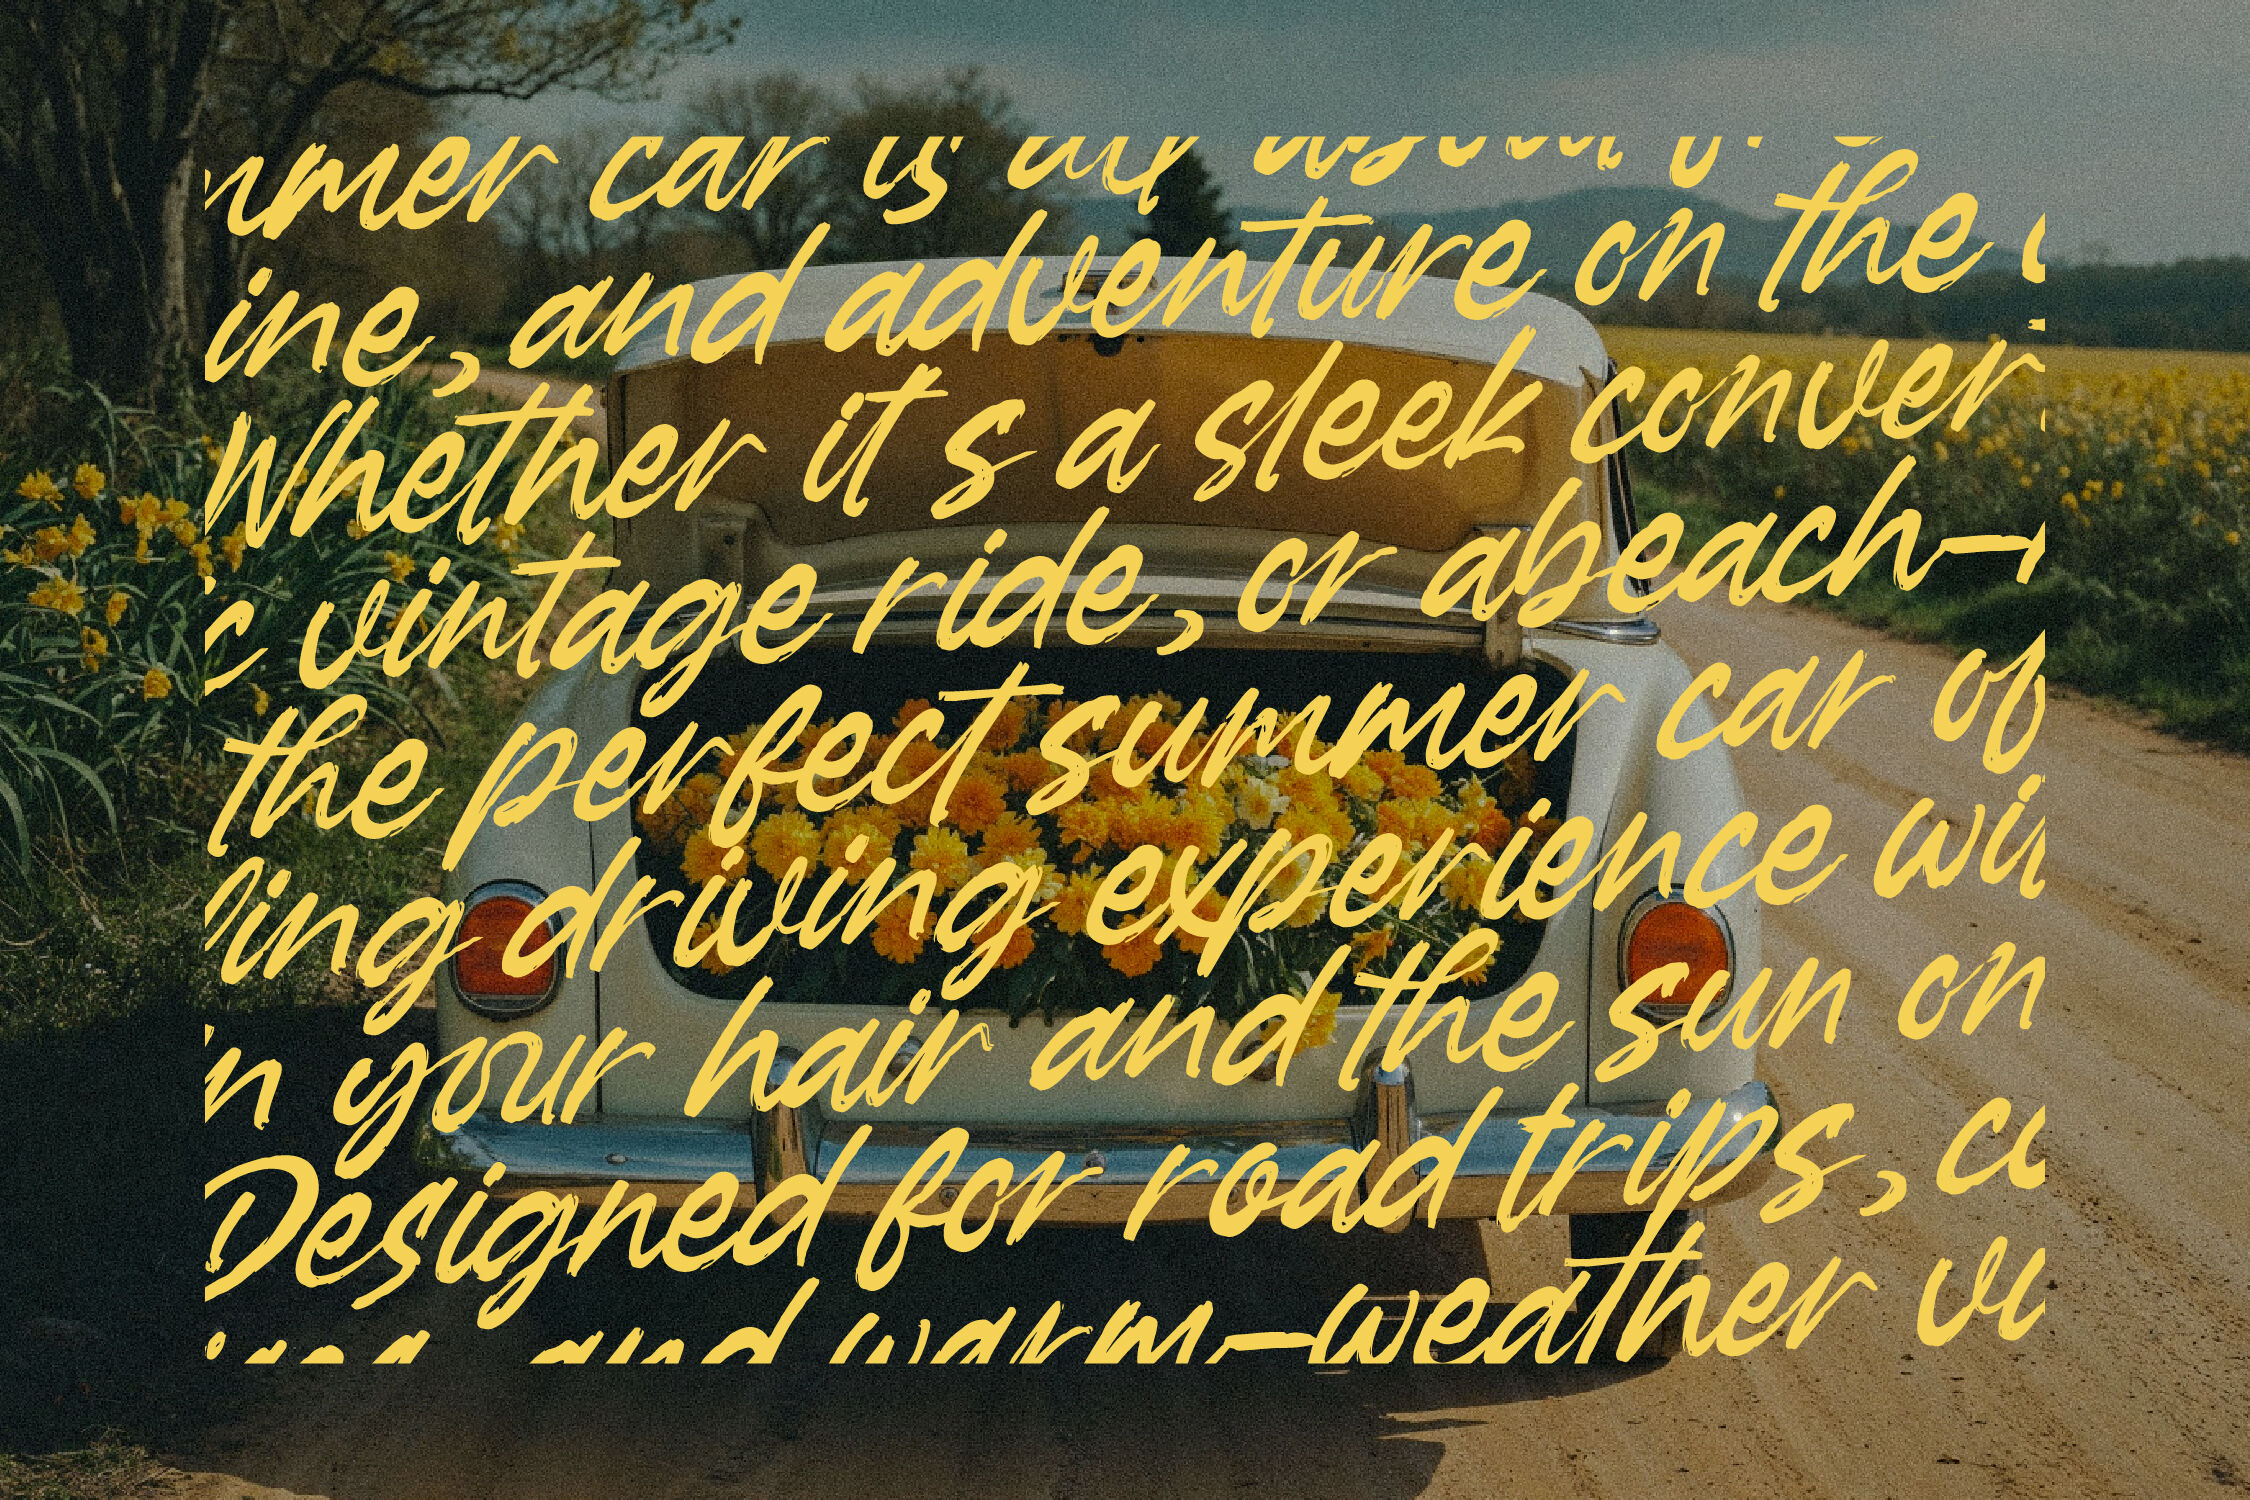 mmer car is all about
ine, and adventure on the
Whether it s a sleek conver
c vintage ride, or abeach-
the perfect summer car of
ling driving experience wi
in your hair and the sun on
Designed for road trips, co
and warm-weather